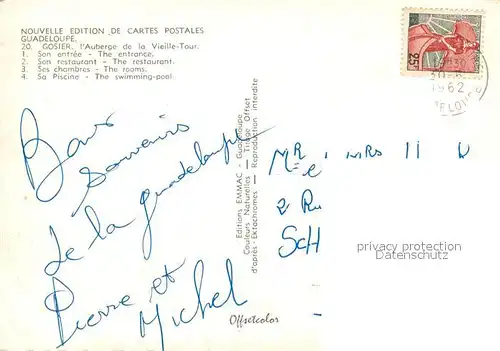 NOUVELLE EDITION DE CARTES POSTALES
GUADELOUPE.
20. GOSIER. l'Auberge de la Vieille-Tour.
1. Son entrée - The entrance.
2. Son restaurant - The restaurant.
3. Ses chambres - The rooms.
4. Sa Piscine - The swimming-pool.
Bons
souvenirs
de la guadeloupe
Pierre et
Michel
Editions EMMAC - Guadeloupe
Couleurs Naturelles - Tirage Offset
d'après - Ektachromes - Reproduction interdite
Offsetcolor
25F
1962
MR e MRS
2 Ru
SCH
privacy protection
Datenschutz